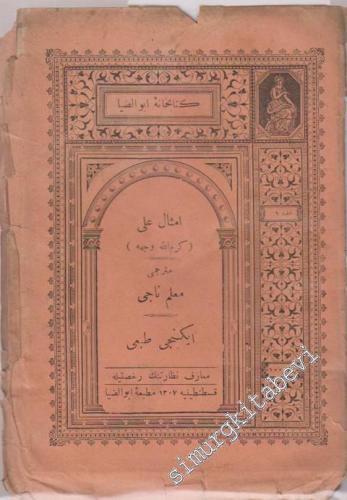 كتابخانهٔ ابوالضيا
عدد ٩
امثال على
( كرم الله وجهه )
مترجمى
معلم ناجى
ايكنجى طبعى
معارف نظارتنك رخصتيله
قسطنطينيه ١٣٠٧ مطبعهٔ ابوالضيا
simurgkitabevi